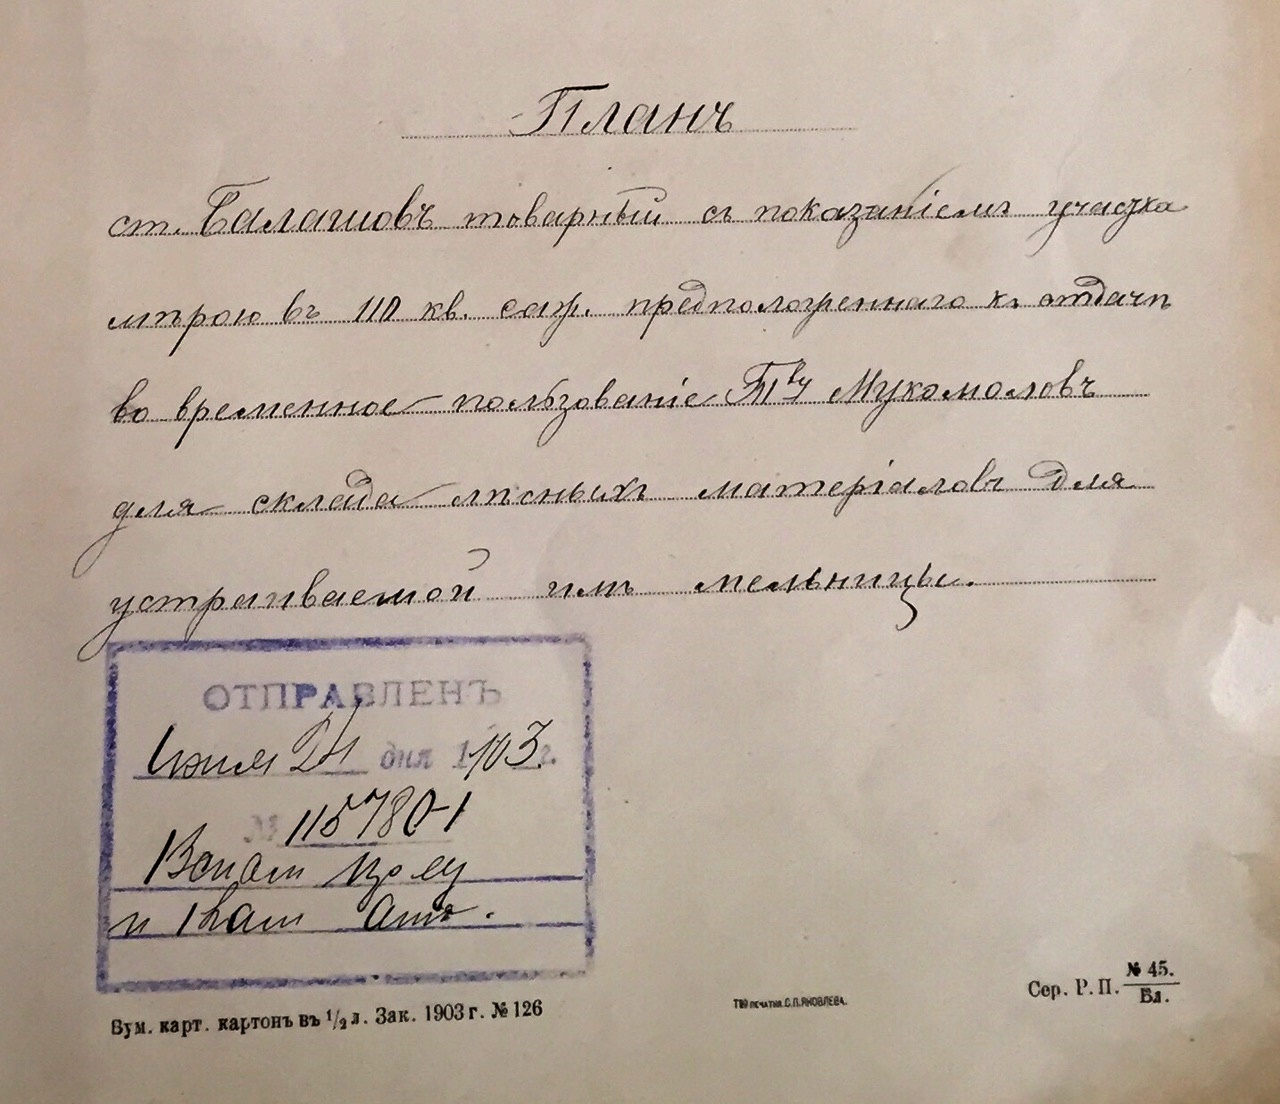 Планъ
ст. Балашовъ товарный съ показаніемъ участка
мѣрою въ 110 кв. саж. предположеннаго къ отдачѣ
во временное пользованіе Т-ву Мукомоловъ
для склада лѣсныхъ матеріаловъ для
устраиваемой имъ мельницы.
ОТПРАВЛЕНЪ
дня 1903 г.
№ 115780-1
и
Бум. карт. картонъ въ 1/2 л. Зак. 1903 г. № 126
Т-во ПЕЧАТНИ. С.П. ЯКОВЛЕВА.
Сер. Р. П. № 45. Бл.